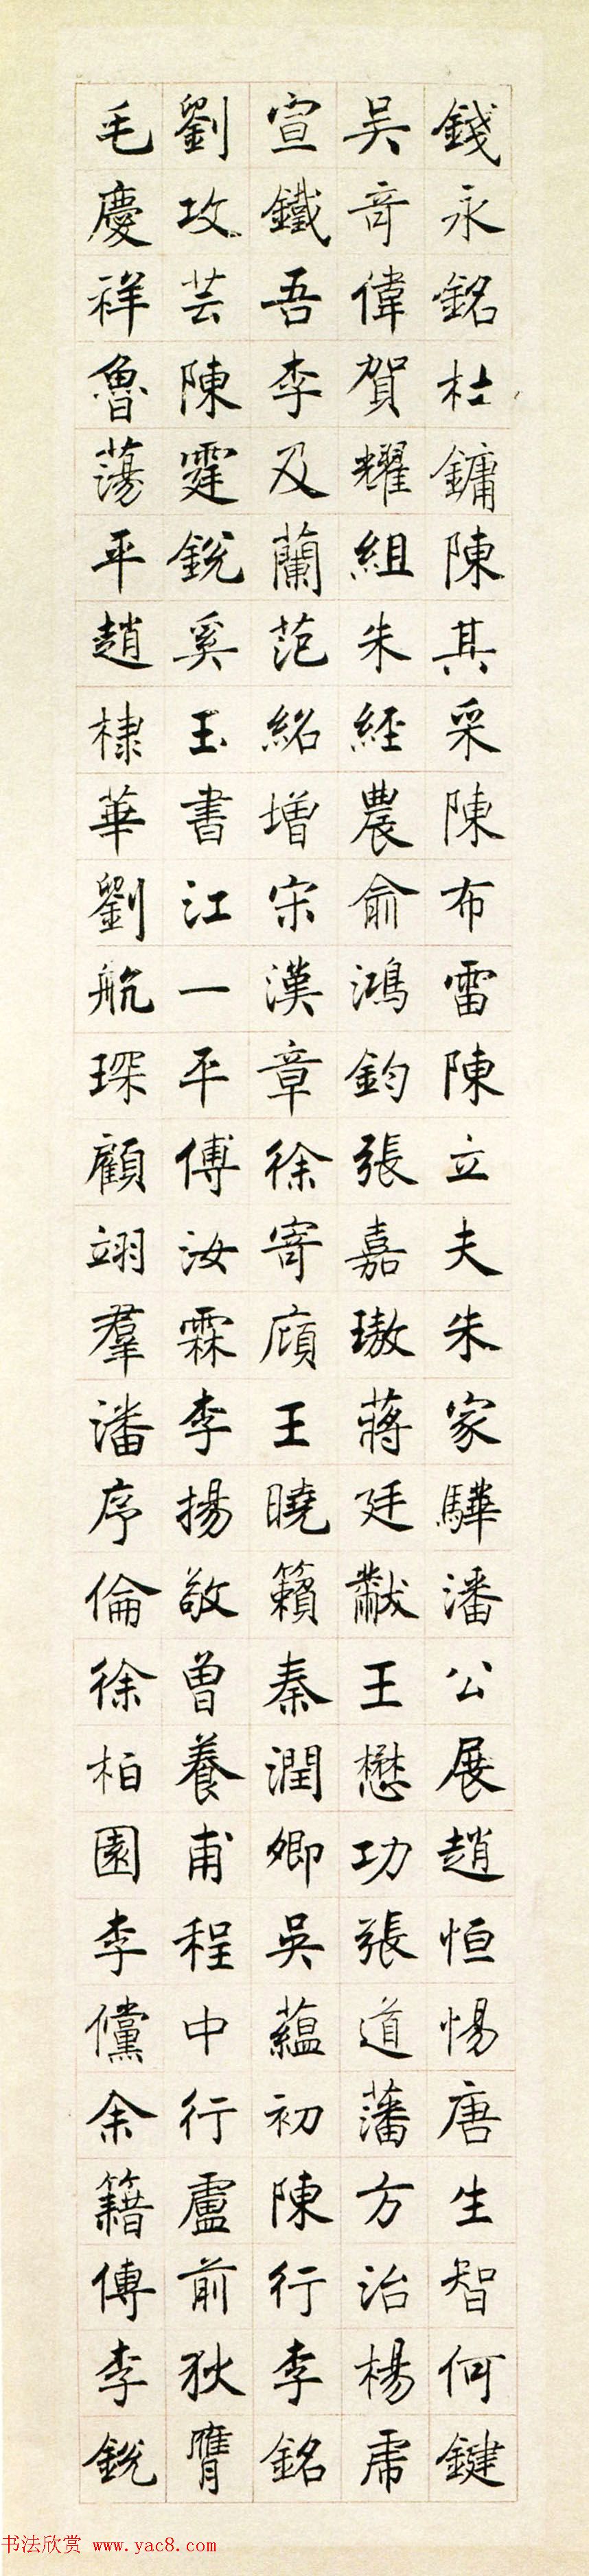 錢永銘杜鏞陳其采陳布雷陳立夫朱家驊潘公展趙恒惕唐生智何鍵
吴奇偉賀耀組朱經農俞鴻鈞張嘉璈蔣廷黻王懋功張道藩方治楊虎
宣鐵吾李及蘭范紹增宋漢章徐寄廎王曉籟秦潤卿吳蘊初陳行李銘
劉攻芸陳霆銳奚玉書江一平傅汝霖李揚敬曾養甫程中行盧前狄膺
毛慶祥魯蕩平趙棣華劉航琛顧翊羣潘序倫徐柏園李儻余籍傳李銳
书法欣赏 www.yac8.com